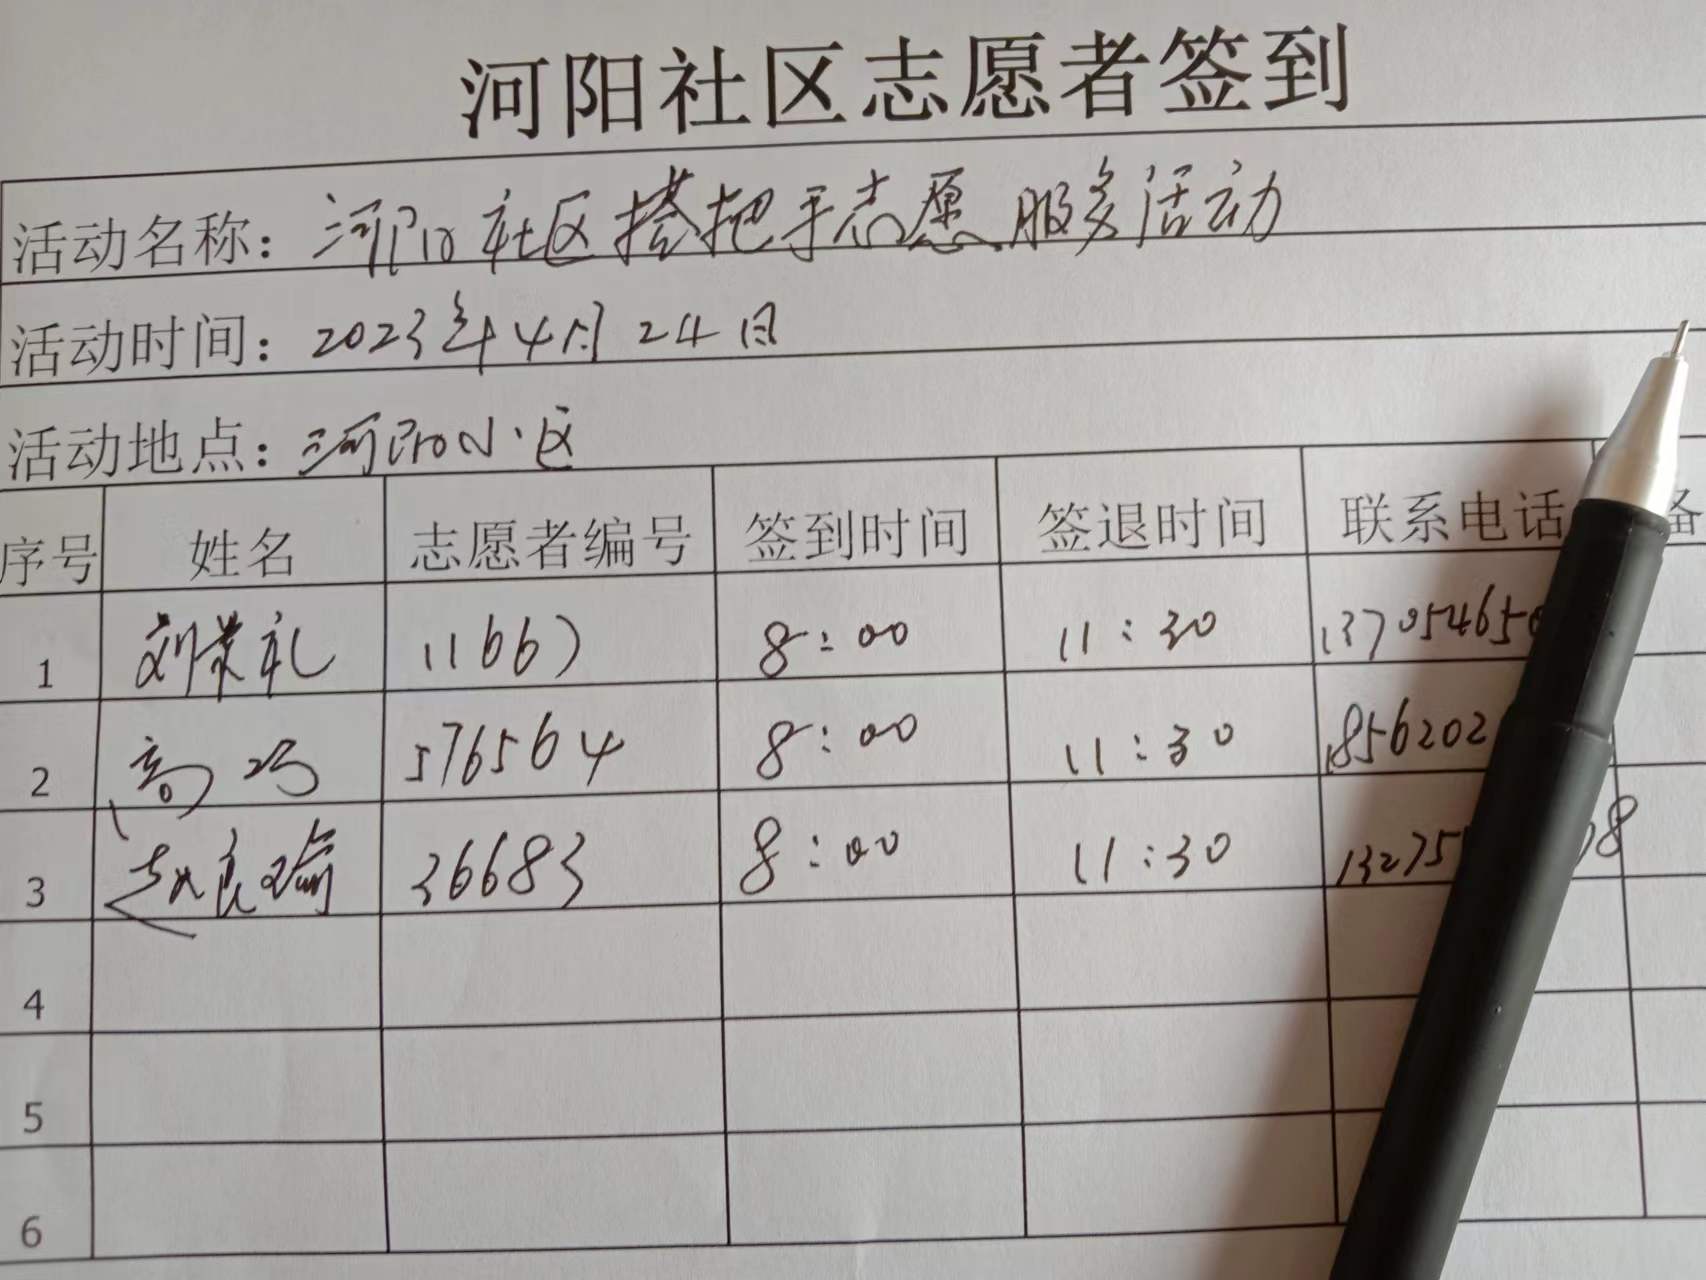 河阳社区志愿者签到
活动名称：河阳社区搭把手志愿服务活动
活动时间：2023年4月24日
活动地点：河阳小区
序号 姓名 志愿者编号 签到时间 签退时间 联系电话 备
1 刘荣礼 11667 8:00 11:30 137054650
2 高巧 576564 8:00 11:30 1856202
3 赵良瑜 36683 8:00 11:30 13275 8
4
5
6